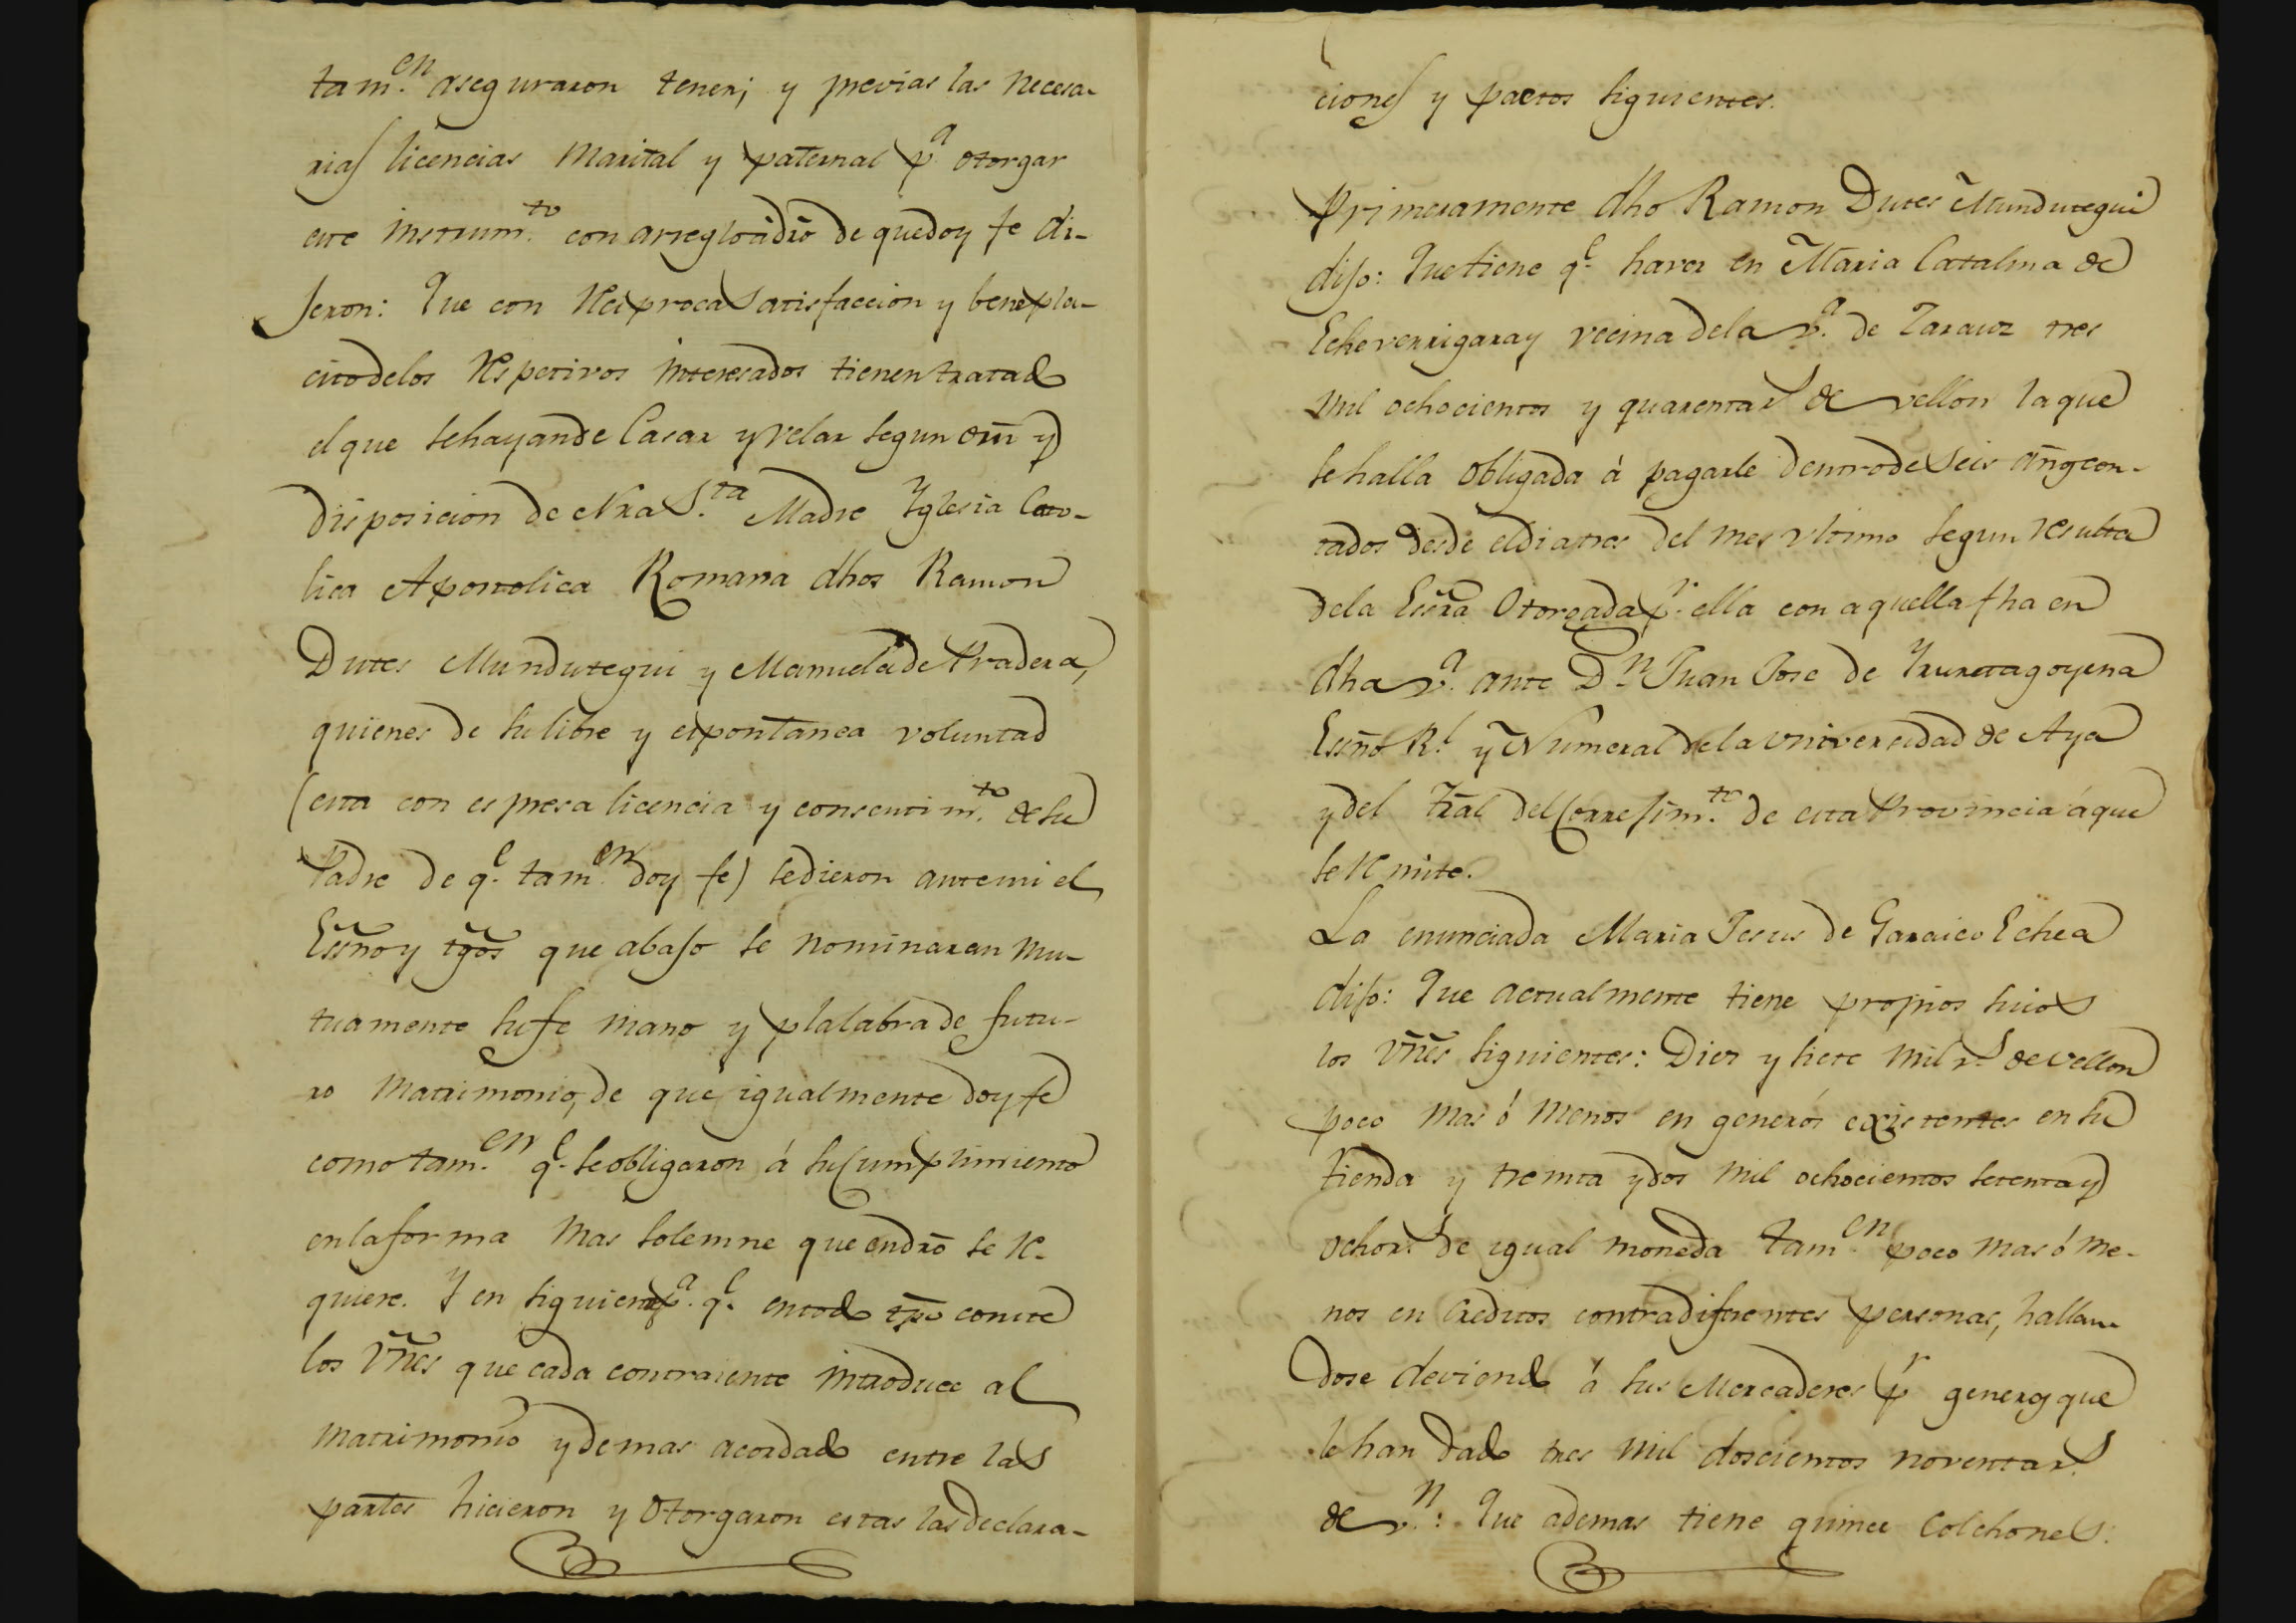 tam.en aseguraron tener; y previas las necesa-
rias licencias Marital y paternal p.a otorgar
este instrum.to con arreglo á dr̃o de que doy fe di-
jeron: Que con Reciproca Satisfaccion y benepla-
cito de los Respetivos interesados tienen tratado
el que se hayan de Casar y velar segun orñ y
disposicion de Nra S.ta Madre Yglesia Cato-
lica Apostolica Romana dhos Ramon
Dutes Mundutegui y Manuela de Pradera,
quienes de su libre y espontanea voluntad
(esta con espresa licencia y consentim.to de su
Padre de q.e tam.en doy fe) se dieron ante mi el
Essño y tgõs que abajo se nominaran mu-
tuamente su fe mano y plalabra de futu-
ro Matrimonio, de que igualmente doy fe
como tam.en q.e se obligaron á su Cumplimiento
en la forma mas solemne que en dr̃o se re-
quiere. Y en siguiente p.a q.e en todo tpõ conste
los Vñes que cada contraiente introduce al
Matrimonio y demas acordado entre las
partes hicieron y Otorgaron estas las declara-
ciones y pactos siguientes.
Primeramente dho Ramon Dutes Mundutegui
dijo: Que tiene q.e haver en Maria Catalina de
Echeverrigaray vecina de la v.a de Zarauz tres
mil ochocientos y quarenta r.s de vellon la que
se halla obligada á pagarle dentro de Seis años con-
tados desde el dia tres del mes vltimo segun resulta
de la Essra Otorgada p.r ella con aquella fha en
dha v.a ante D.n Juan Jose de Yruretagoyena
Essño R.l y Numeral de la Universidad de Aya
y del Tral del Correjim.to de esta Provincia á que
se Remite.
La enunciada Maria Jesus de Garaicoechea
dijo: Que actualmente tiene propios suios
los Vñes siguientes: Diez y siete mil r.s de vellon
poco mas ó menos en generos existentes en su
tienda y treinta y dos mil ochocientos setenta y
ocho r.s de igual moneda tam.en poco mas ó me-
nos en Creditos contra diferentes personas, hallan-
dose deviendo á sus Mercaderes p.r generos que
le han dado tres mil doscientos noventa r.s
de v.n: Que ademas tiene quince Colchones.